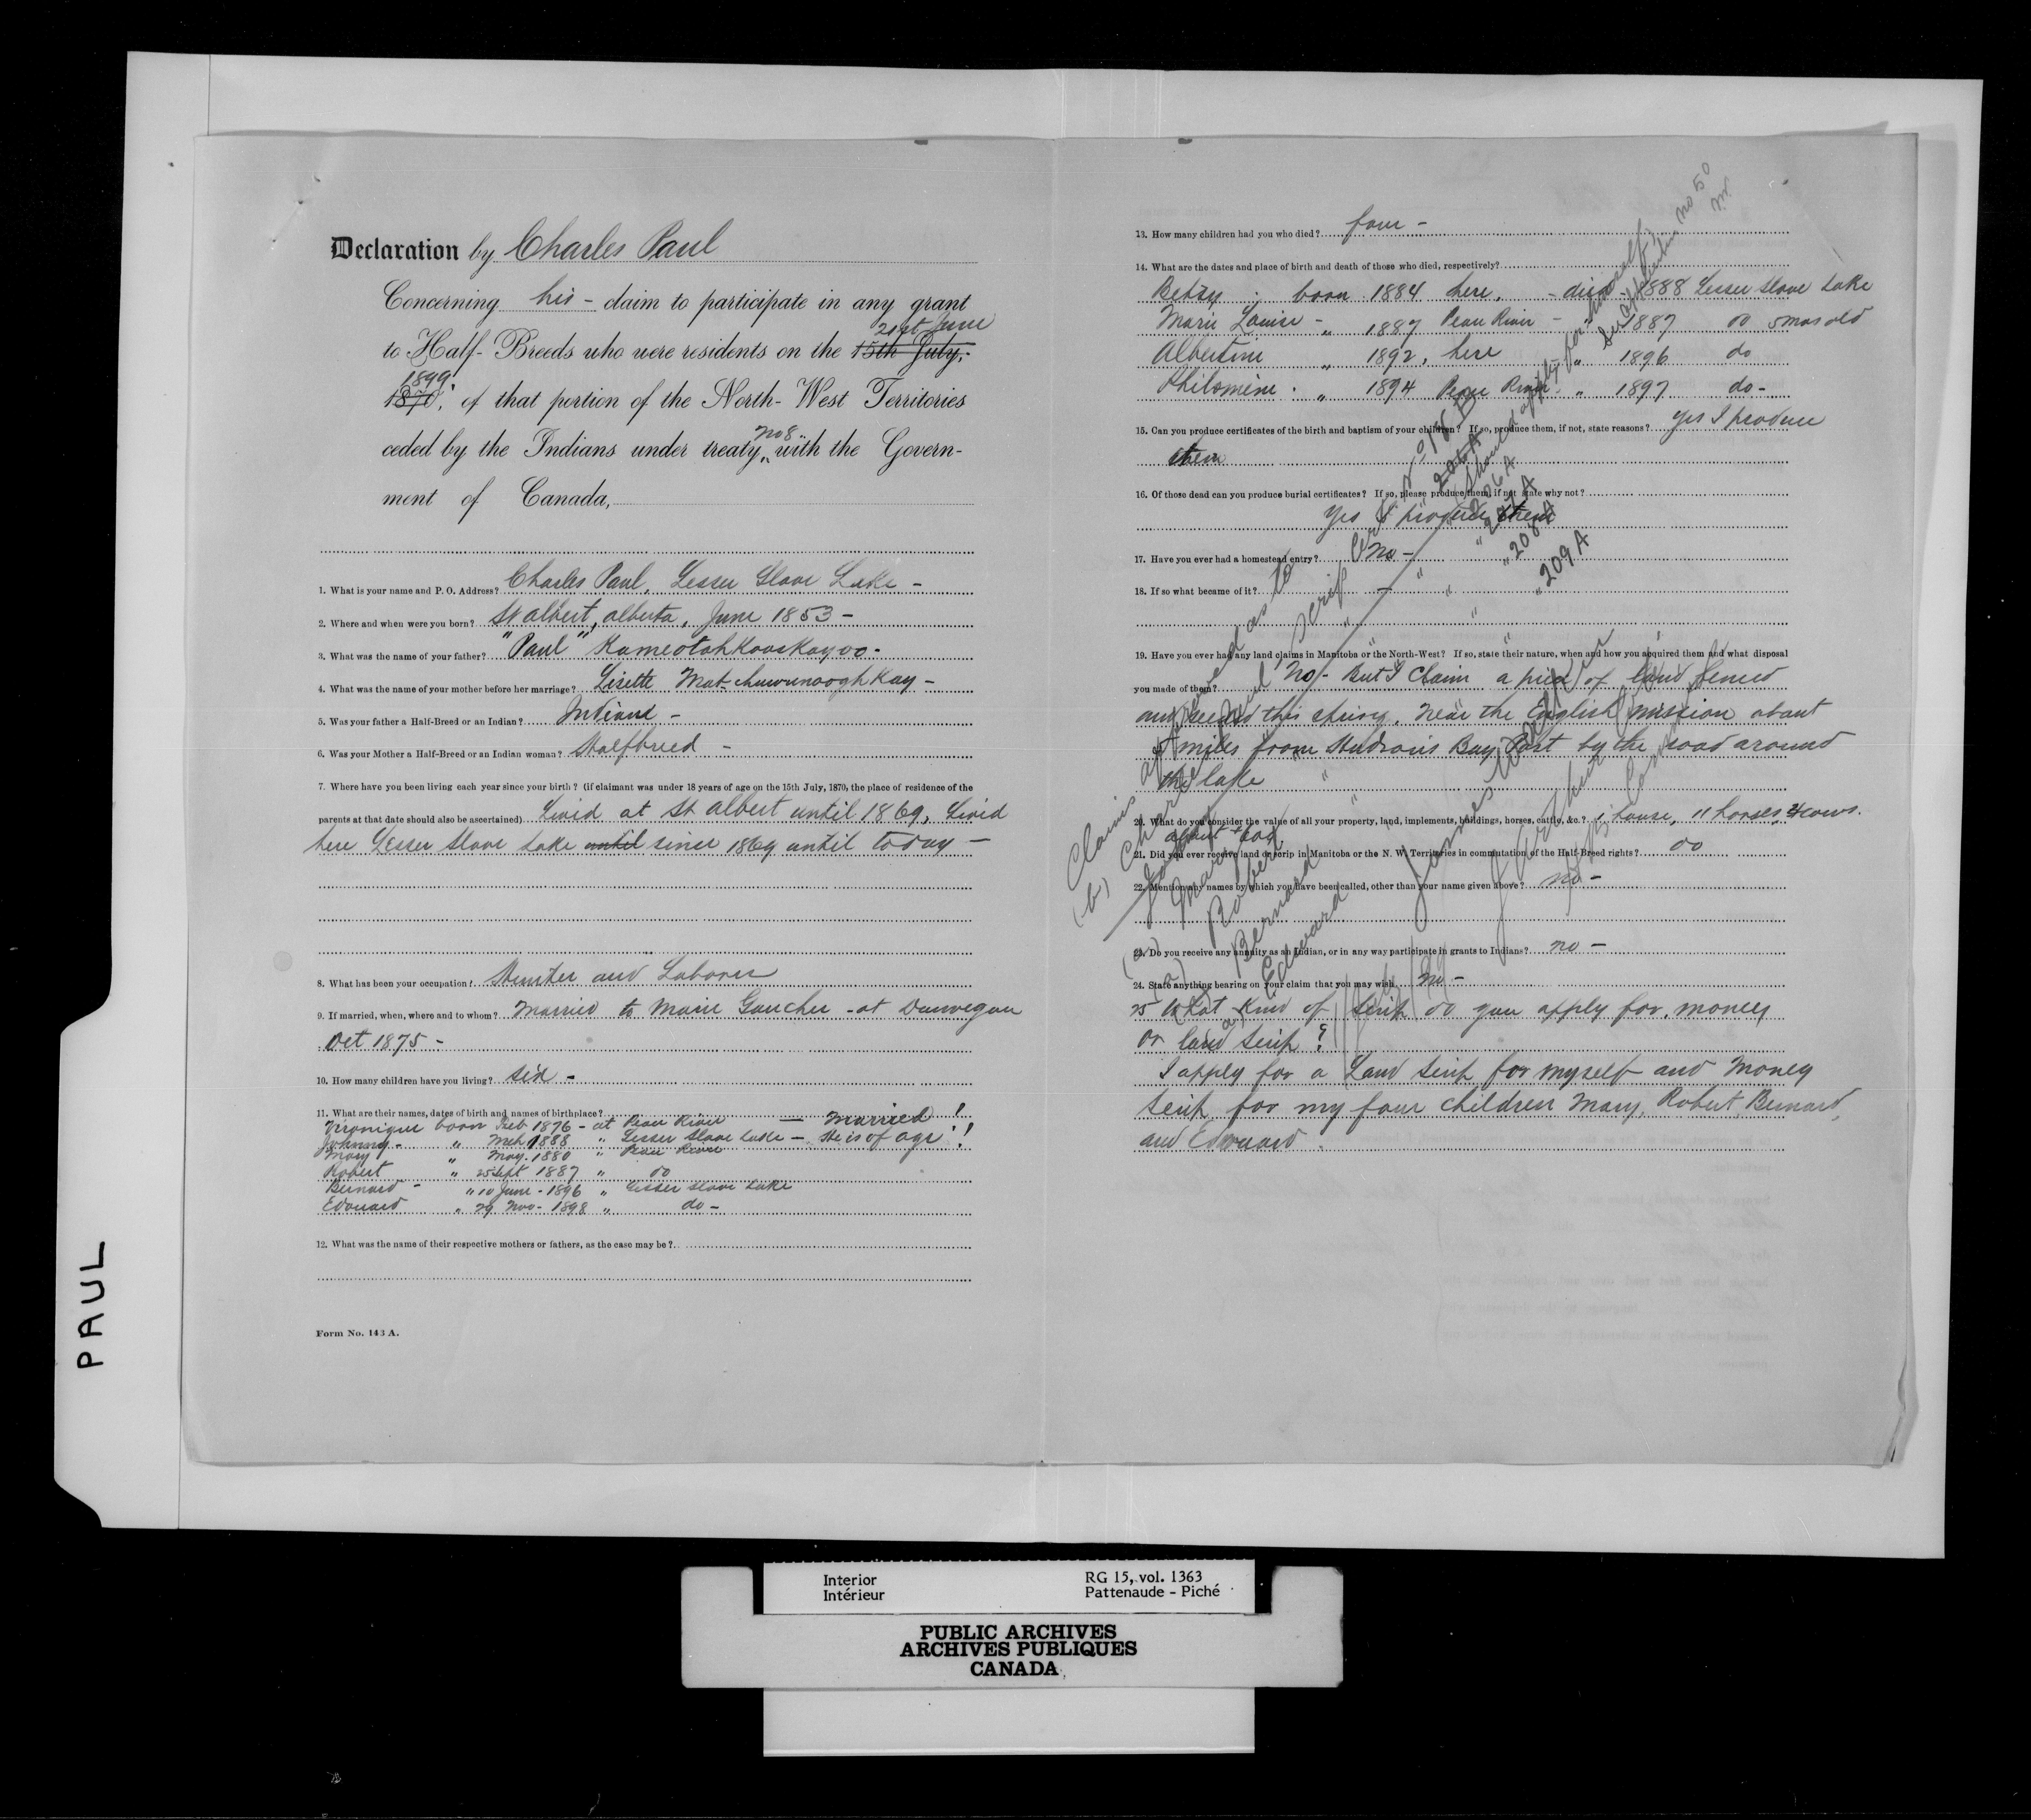 Declaration by Charles Paul
Concerning his - claim to participate in any grant
21st June
to Half-Breeds who were residents on the 15th July,
1899
1870, of that portion of the North-West Territories
no 8
ceded by the Indians under treaty with the Govern-
ment of Canada,
1. What is your name and P. O. Address? Charles Paul, Lesser Slave Lake -
2. Where and when were you born? St Albert, Alberta, June 1853 -
3. What was the name of your father? "Paul" Kameotahkooskayoo -
4. What was the name of your mother before her marriage? Lisette
5. Was your father a Half-Breed or an Indian? Indian -
6. Was your Mother a Half-Breed or an Indian woman? Halfbreed -
7. Where have you been living each year since your birth? (if claimant was under 18 years of age on the 15th July, 1870, the place of residence of the
parents at that date should also be ascertained) Livid at St Albert until 1869, Livid
here Lesser Slave Lake until since 1869 until today -
8. What has been your occupation? Hunter and Laborer
9. If married, when, where and to whom? Married to Marie Gaucher - at Dunvegan
Oct 1875 -
10. How many children have you living? six -
11. What are their names, dates of birth and names of birthplace?
Veronique born Feb 1876 - at Peace River - Married !
Johnny - " Mch 1888 " Lesser Slave Lake - He is of age !
Mary " May. 1880 " Peace River
Robert " 25 Sept 1887 " do
Bernard - " 10 June - 1896 " Lesser Slave Lake
Edouard " 29 Nov - 1898 " do -
12. What was the name of their respective mothers or fathers, as the case may be?
Form No. 143 A.
no 50
13. How many children had you who died? four -
14. What are the dates and place of birth and death of those who died, respectively?
Betsy born 1884 here, - died 1888 Lesser Slave Lake
Marie Louise - " 1887 Peace River - 1887 do 5 mos old
Albertine " 1892, here " 1896 do
Philomène " 1894 Peace River " 1897 do -
15. Can you produce certificates of the birth and baptism of your children? If so, produce them, if not, state reasons? Yes I produce
them
16. Of those dead can you produce burial certificates? If so, please produce them, if not state why not?
Yes I produce them
17. Have you ever had a homestead entry? No -
18. If so what became of it? -
19. Have you ever had any land claims in Manitoba or the North-West? If so, state their nature, when and how you acquired them and what disposal
you made of them? No - But I Claim a piece of land fenced
and seeded this spring, near the English mission about
miles from Hudson's Bay Post by the road around
the lake
20. What do you consider the value of all your property, land, implements, buildings, horses, cattle, &c.? 1 house, 11 horses, 4 cows.
21. Did you ever receive land or scrip in Manitoba or the N. W. Territories in commutation of the Half-Breed rights? do
22. Mention any names by which you have been called, other than your name given above? no -
23. Do you receive any annuity as an Indian, or in any way participate in grants to Indians? no -
24. State anything bearing on your claim that you may wish. no -
25 What kind of scrip do you apply for, money
or land scrip?
I apply for a Land scrip for myself and Money
scrip for my four children Mary, Robert Bernard,
and Edouard.
Claims approved as to
(b) Charles Paul Scrip Cert No 18 B
Mary
Robert " 206 A
Bernard " 208 A
Edward " 209 A
James Walker
PAUL
Interior
Intérieur
RG 15, vol. 1363
Pattenaude - Piché
PUBLIC ARCHIVES
ARCHIVES PUBLIQUES
CANADA